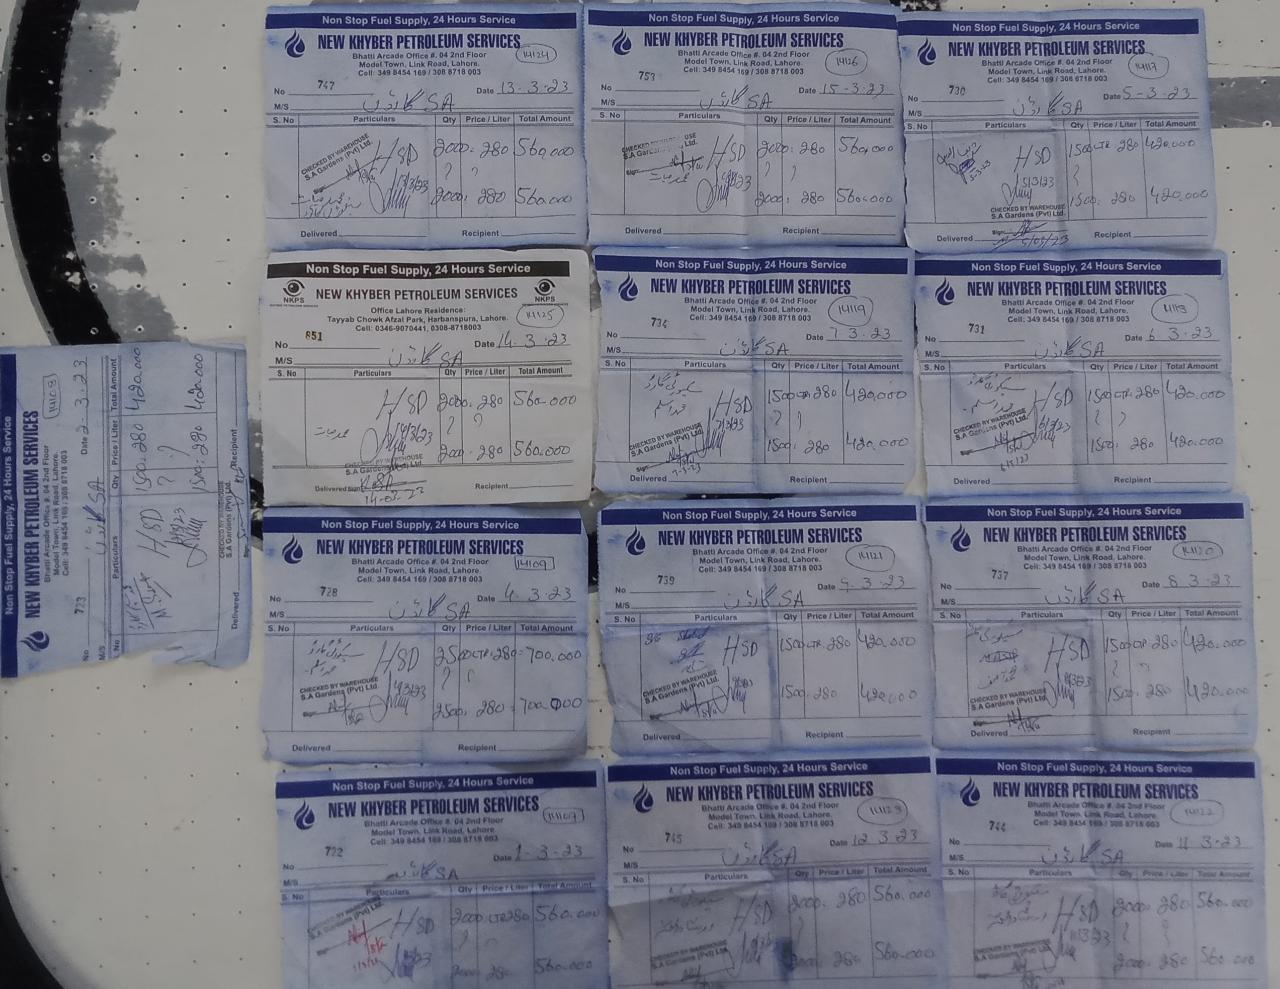 Non Stop Fuel Supply, 24 Hours Service
NEW KHYBER PETROLEUM SERVICES
Bhatti Arcade Office #. 04 2nd Floor
14124
Model Town, Link Road, Lahore.
Cell: 349 8454 169 / 308 8718 003
No 747 Date 13-3-23
M/S گارڈن SA
S. No Particulars Qty Price / Liter Total Amount
CHECKED BY WAREHOUSE
S.A Gardens (Pvt) Ltd.
HSD 2000: 280 560,000
2000: 280 560,000
Delivered Recipient
Non Stop Fuel Supply, 24 Hours Service
NEW KHYBER PETROLEUM SERVICES
Bhatti Arcade Office #. 04 2nd Floor
14126
Model Town, Link Road, Lahore.
Cell: 349 8454 169 / 308 8718 003
No 753 Date 15-3-23
M/S گارڈن SA
S. No Particulars Qty Price / Liter Total Amount
HSD 2000: 280 560,000
2000: 280 560,000
Delivered Recipient
Non Stop Fuel Supply, 24 Hours Service
NEW KHYBER PETROLEUM SERVICES
Bhatti Arcade Office #. 04 2nd Floor
14117
Model Town, Link Road, Lahore.
Cell: 349 8454 169 / 308 8718 003
No 730 Date 5-3-23
M/S گارڈن SA
S. No Particulars Qty Price / Liter Total Amount
HSD 1500 LTR 280 420,000
5/3/23
1500: 280 420,000
CHECKED BY WAREHOUSE
S.A Gardens (Pvt) Ltd.
Delivered 5/03/23 Recipient
Non Stop Fuel Supply, 24 Hours Service
NKPS NEW KHYBER PETROLEUM SERVICES NKPS
Office Lahore Residence:
Tayyab Chowk Afzal Park, Harbanspura, Lahore.
14125
Cell: 0346-9070441, 0308-8718003
No 851 Date 14-3-23
M/S گارڈن SA
S. No Particulars Qty Price / Liter Total Amount
HSD 2000: 280 560,000
14/3/23
2000: 280 560,000
CHECKED BY WAREHOUSE
Delivered Recipient
14-03-23
Non Stop Fuel Supply, 24 Hours Service
NEW KHYBER PETROLEUM SERVICES
Bhatti Arcade Office #. 04 2nd Floor
14119
Model Town, Link Road, Lahore.
Cell: 349 8454 169 / 308 8718 003
No 734 Date 7-3-23
M/S گارڈن SA
S. No Particulars Qty Price / Liter Total Amount
HSD 1500 LTR 280 420,000
7/3/23
1500: 280 420,000
CHECKED BY WAREHOUSE
S.A Gardens (Pvt) Ltd.
Delivered 7-3-23 Recipient
Non Stop Fuel Supply, 24 Hours Service
NEW KHYBER PETROLEUM SERVICES
Bhatti Arcade Office #. 04 2nd Floor
Model Town, Link Road, Lahore.
Cell: 349 8454 169 / 308 8718 003
No 731 Date 6-3-23
M/S گارڈن SA
S. No Particulars Qty Price / Liter Total Amount
HSD 1500 LTR 280 420,000
6/3/23
1500: 280 420,000
CHECKED BY WAREHOUSE
S.A Gardens (Pvt) Ltd.
Delivered Recipient
Non Stop Fuel Supply, 24 Hours Service
NEW KHYBER PETROLEUM SERVICES
Bhatti Arcade Office #. 04 2nd Floor
14108
Model Town, Link Road, Lahore.
Cell: 349 8454 169 / 308 8718 003
No 723 Date 2-3-23
M/S گارڈن SA
S. No Particulars Qty Price / Liter Total Amount
HSD 1500: 280 420,000
1500: 280 420,000
CHECKED BY WAREHOUSE
S.A Gardens (Pvt) Ltd.
Delivered Recipient
Non Stop Fuel Supply, 24 Hours Service
NEW KHYBER PETROLEUM SERVICES
Bhatti Arcade Office #. 04 2nd Floor
14109
Model Town, Link Road, Lahore.
Cell: 349 8454 169 / 308 8718 003
No 728 Date 4-3-23
M/S گارڈن SA
S. No Particulars Qty Price / Liter Total Amount
HSD 2500 LTR 280 700,000
4/3/23
2500: 280 700,000
CHECKED BY WAREHOUSE
S.A Gardens (Pvt) Ltd.
Delivered Recipient
Non Stop Fuel Supply, 24 Hours Service
NEW KHYBER PETROLEUM SERVICES
Bhatti Arcade Office #. 04 2nd Floor
14121
Model Town, Link Road, Lahore.
Cell: 349 8454 169 / 308 8718 003
No 739 Date 9-3-23
M/S گارڈن SA
S. No Particulars Qty Price / Liter Total Amount
HSD 1500 LTR 280 420,000
1500: 280 420,000
CHECKED BY WAREHOUSE
S.A Gardens (Pvt) Ltd.
Delivered Recipient
Non Stop Fuel Supply, 24 Hours Service
NEW KHYBER PETROLEUM SERVICES
Bhatti Arcade Office #. 04 2nd Floor
14120
Model Town, Link Road, Lahore.
Cell: 349 8454 169 / 308 8718 003
No 737 Date 8-3-23
M/S گارڈن SA
S. No Particulars Qty Price / Liter Total Amount
HSD 1500 LTR 280 420,000
1500: 280 420,000
CHECKED BY WAREHOUSE
S.A Gardens (Pvt) Ltd.
Delivered Recipient
Non Stop Fuel Supply, 24 Hours Service
NEW KHYBER PETROLEUM SERVICES
Bhatti Arcade Office #. 04 2nd Floor
14107
Model Town, Link Road, Lahore
Cell: 349 8454 169 / 308 8718 003
No 722 Date 1-3-23
M/S گارڈن SA
S. No Particulars Qty Price / Liter Total Amount
CHECKED BY WAREHOUSE
S.A Gardens (Pvt) Ltd.
HSD 2000 LTR 280 560,000
2000: 280 560,000
Non Stop Fuel Supply, 24 Hours Service
NEW KHYBER PETROLEUM SERVICES
Bhatti Arcade Office #. 04 2nd Floor
14123
Model Town, Link Road, Lahore.
Cell: 349 8454 169 / 308 8718 003
No 745 Date 12-3-23
M/S گارڈن SA
S. No Particulars Qty Price / Liter Total Amount
HSD 2000: 280 560,000
2000: 280 560,000
CHECKED BY WAREHOUSE
S.A Gardens (Pvt) Ltd.
Non Stop Fuel Supply, 24 Hours Service
NEW KHYBER PETROLEUM SERVICES
Bhatti Arcade Office #. 04 2nd Floor
14122
Model Town, Link Road, Lahore.
Cell: 349 8454 169 / 308 8718 003
No 744 Date 11-3-23
M/S گارڈن SA
S. No Particulars Qty Price / Liter Total Amount
HSD 2000: 280 560,000
2000: 280 560,000
CHECKED BY WAREHOUSE
S.A Gardens (Pvt) Ltd.